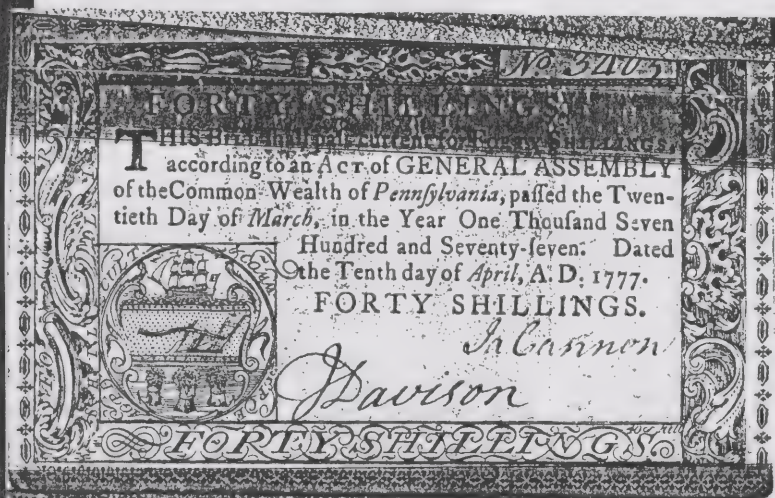 No. 3405
FORTY SHILLINGS.
THIS Bill shall pass current for FORTY SHILLINGS,
according to an ACT of GENERAL ASSEMBLY
of the Common-Wealth of Pennſylvania, paſſed the Twen-
tieth Day of March, in the Year One Thouſand Seven
Hundred and Seventy-ſeven. Dated
the Tenth day of April, A.D. 1777.
FORTY SHILLINGS.
Ja Cannon
J Davison
FORTY SHILLINGS.